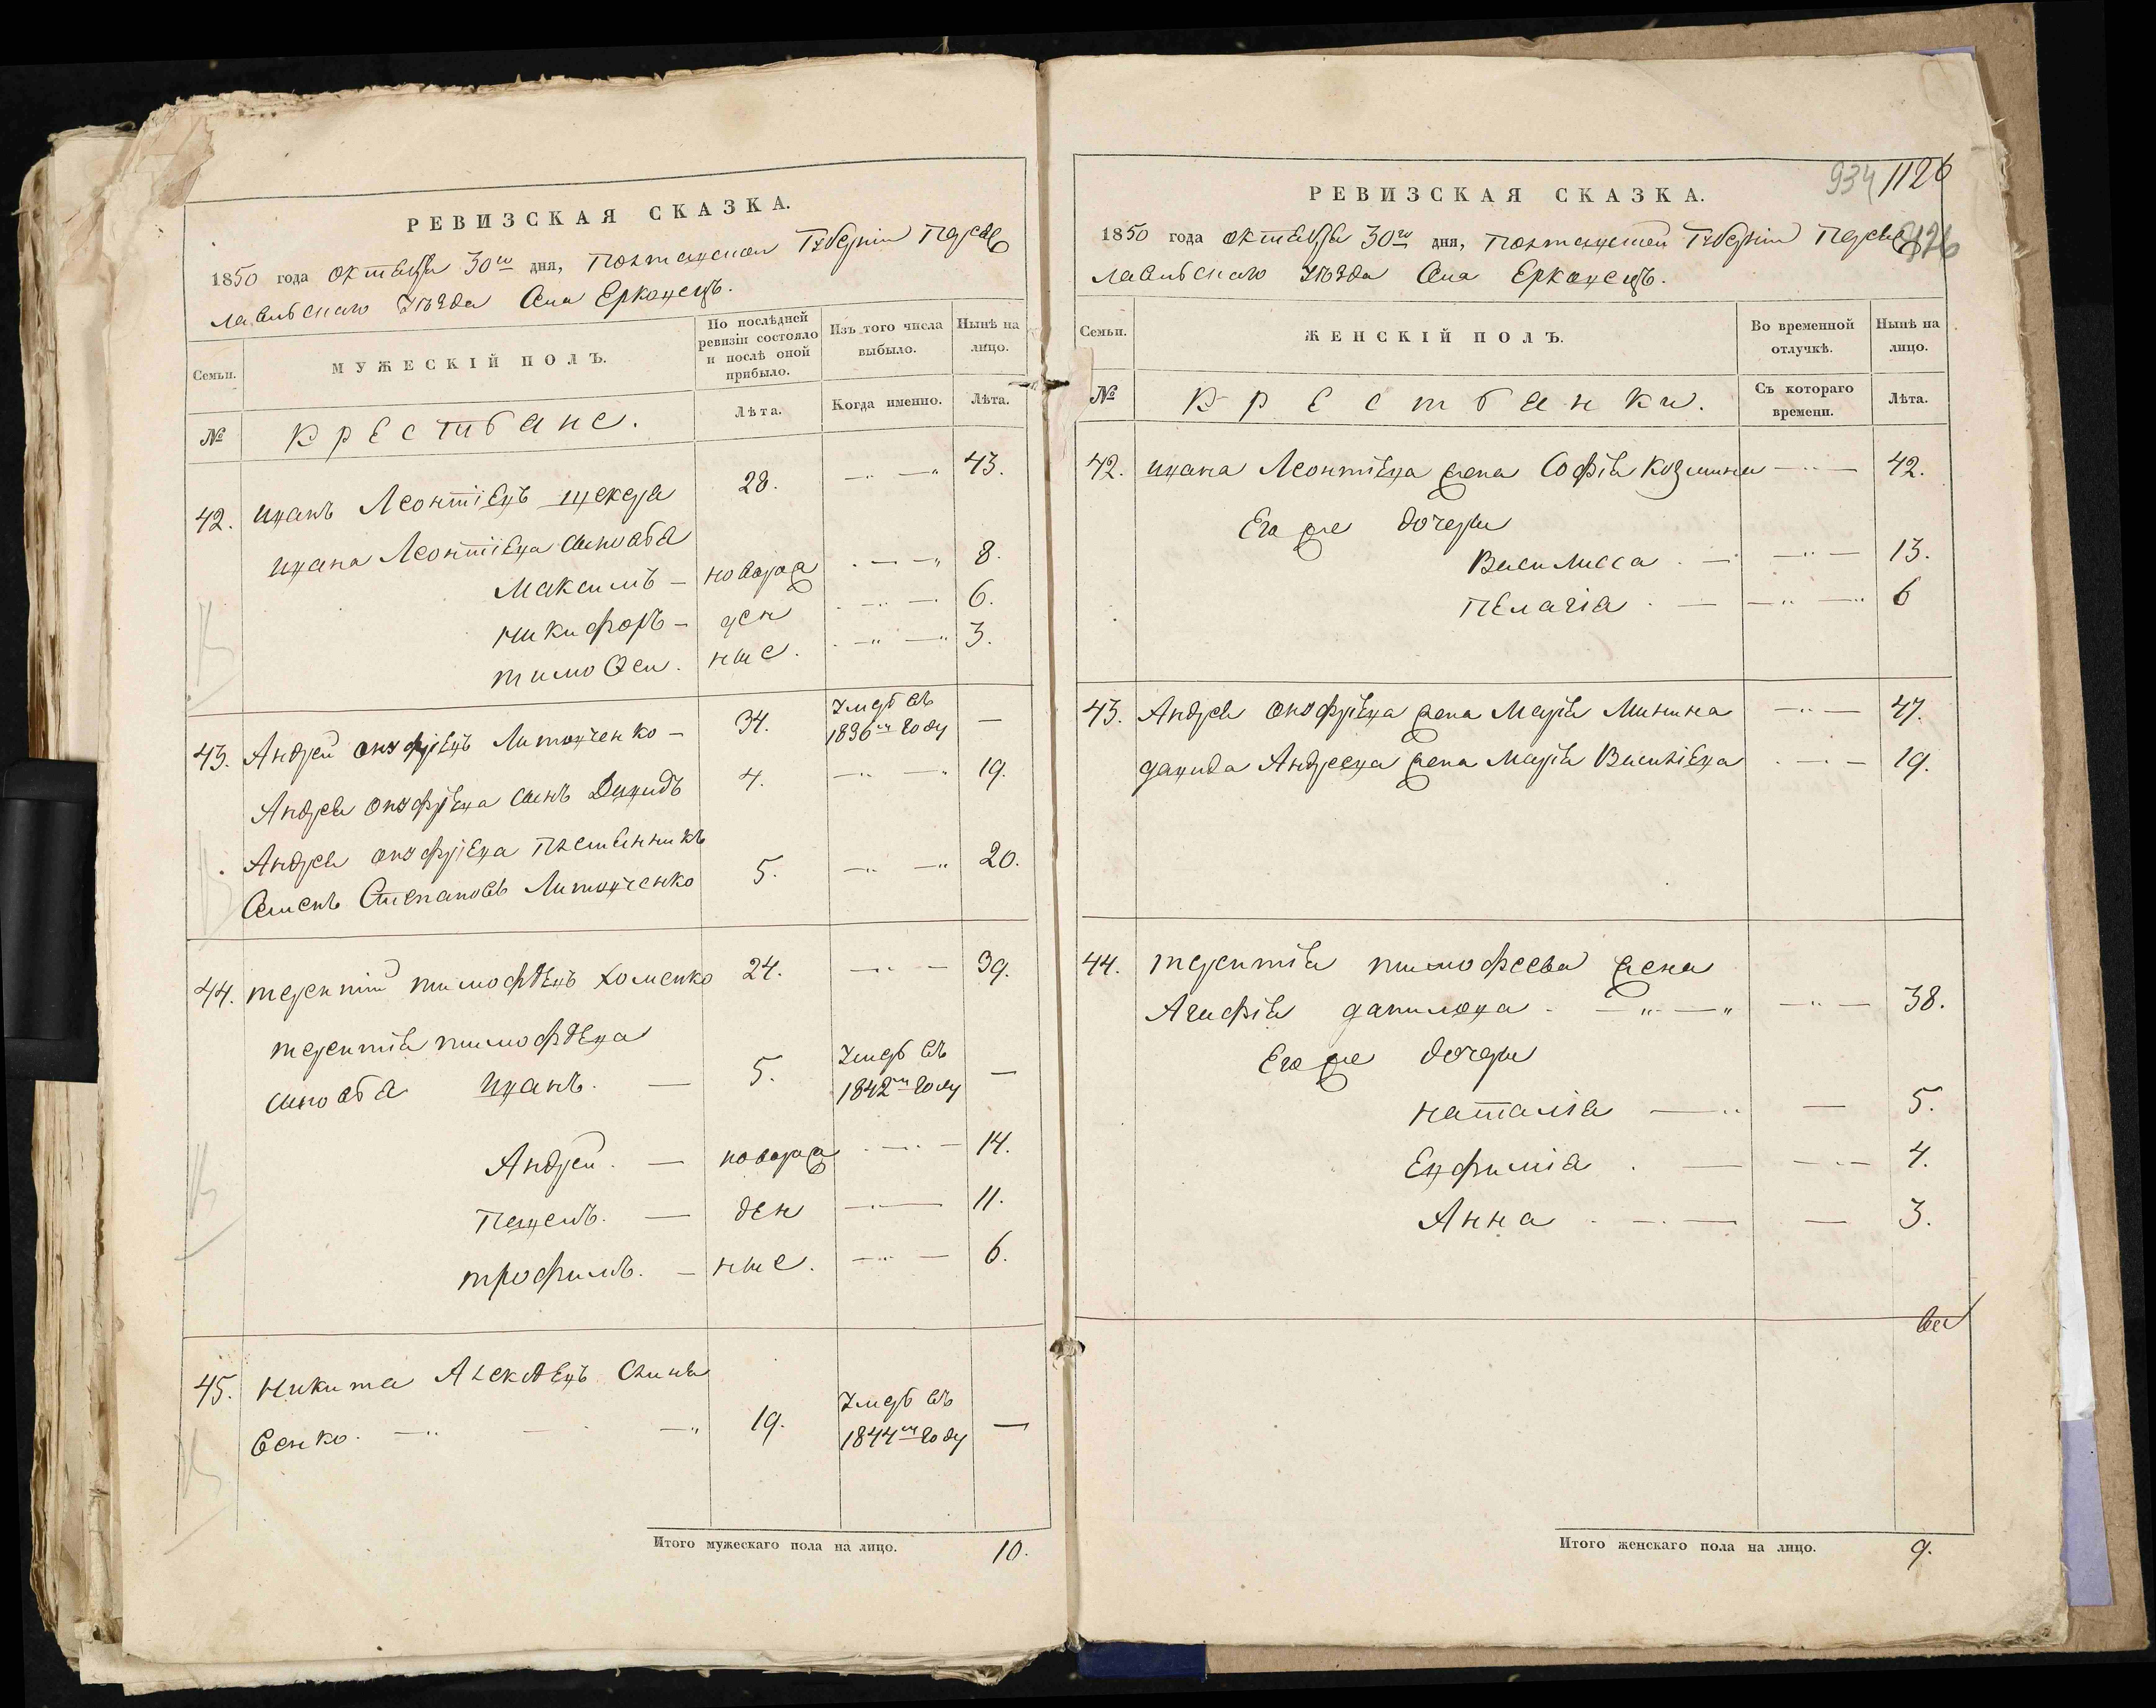 РЕВИЗСКАЯ СКАЗКА.
1850 года октября 30го дня, Полтавской Губерніи Переяс
лавльскаго Уѣзда Села Ерковецъ.
Семьи.
МУЖЕСКІЙ ПОЛЪ.
По послѣдней ревизіи состояло и послѣ оной прибыло.
Изъ того числа выбыло.
Нынѣ на лицо.
№
Крестьяне.
Лѣта.
Когда именно.
Лѣта.
42. Иванъ Леонтіевъ 28. 43.
Ивана Леонтіева сыновья
Максимъ – новорож 8.
Никифоръ – ден 6.
Тимоѳей. ные. 3.
43. Андрей Онуфріевъ Литовченко – 34. Умеръ въ 1836м году —
Андрея Онуфріева сынъ Давидъ 4. 19.
Андрея Онуфріева племянникъ
Семенъ Степановъ Литовченко 5. 20.
44. Терентій Тимофѣевъ Хоменко 24. 39.
Терентія Тимофѣева
сыновья Иванъ. — 5. Умеръ въ 1842м году —
Андрей. — новорож 14.
Павелъ. — ден 11.
Трофимъ. — ные. 6.
45. Никита Алексѣевъ
Сенко. 19. Умеръ въ 1844м году —
Итого мужескаго пола на лицо. 10.
934 1126
РЕВИЗСКАЯ СКАЗКА.
1850 года октября 30го дня, Полтавской Губерніи Переяс
лавльскаго Уѣзда Села Ерковецъ.
Семьи.
ЖЕНСКІЙ ПОЛЪ.
Во временной отлучкѣ.
Нынѣ на лицо.
№
Крестьянки.
Съ котораго времени.
Лѣта.
42. Ивана Леонтіева жена Софія Козмина 42.
Его же дочери
Василисса 13.
Пелагія 6
43. Андрея Онуфріева жена Марія Минина 47.
Давида Андреева жена Марія Василіева 19.
44. Терентія Тимофеева жена
Агафія Данилова 38.
Его же дочери
Наталія 5.
Евфимія 4.
Анна 3.
Итого женскаго пола на лицо. 9.